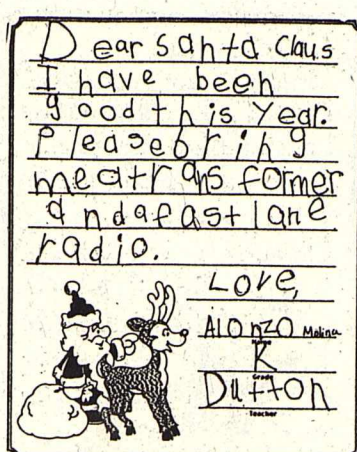 Dear Santa Claus
I have been
good this year.
Please bring
me a trans former
and a fast lane
radio.
Love,
Alonzo Molina
K
Grade
Dutton
Teacher